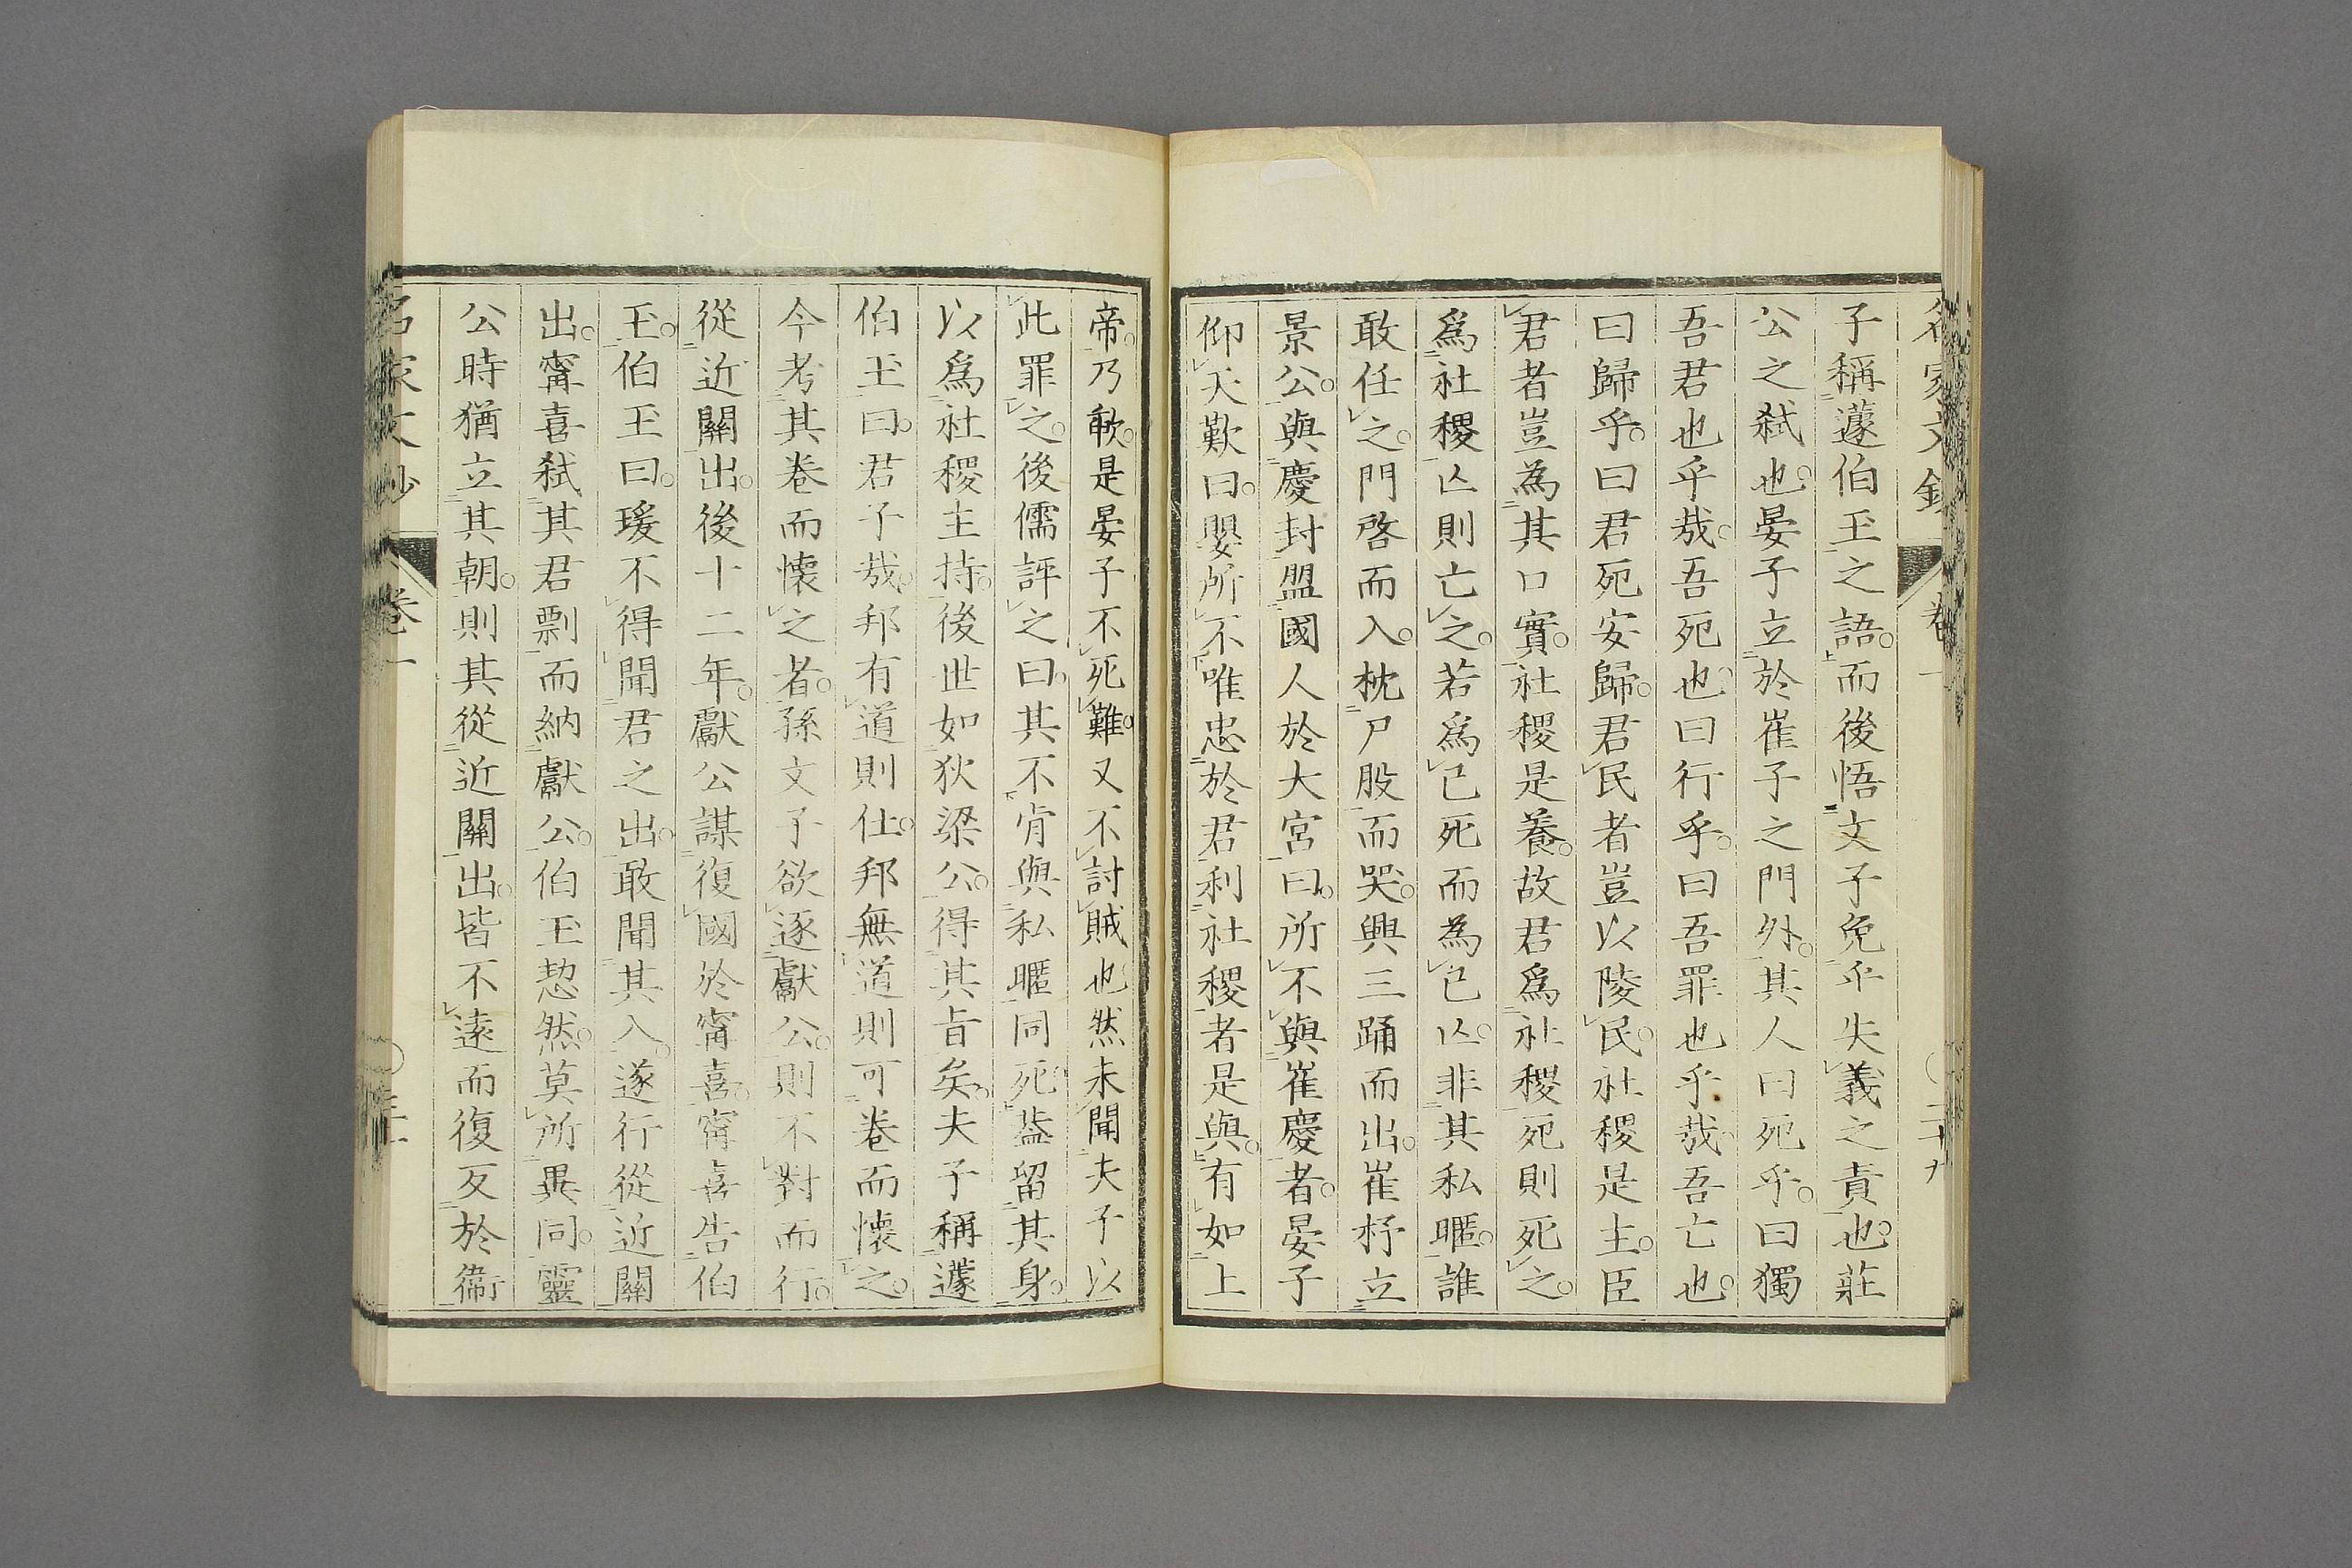 子稱蘧伯玉之語而後悟文子免乎失義之責也莊
公之弑也晏子立於崔子之門外其人曰死乎曰獨
吾君也乎哉吾死也曰行乎曰吾罪也乎哉吾亡也
曰歸乎曰君死安歸君民者豈以陵民社稷是主臣
君者豈為其口實社稷是養故君爲社稷死則死之
爲社稷亾則亡之若爲己死而為己亾非其私暱誰
敢任之門啓而入枕尸股而哭興三踊而出崔杼立
景公與慶封盟國人於大宮曰所不與崔慶者晏子
仰天歎曰嬰所不唯忠於君利社稷者是與有如上
帝乃歃是晏子不死難又不討賊也然未聞夫子以
此罪之後儒評之曰其不肯與私暱同死葢留其身
以爲社稷主持後世如狄梁公得其旨矣夫子稱蘧
伯玉曰君子哉邦有道則仕邦無道則可卷而懷之
今考其卷而懷之者孫文子欲逐獻公則不對而行
從近關出後十二年獻公謀復國於甯喜甯喜告伯
玉伯玉曰瑗不得聞君之出敢聞其入遂行從近關
出甯喜弑其君剽而納獻公伯玉恝然莫所異同靈
公時猶立其朝則其從近關出皆不遠而復反於衞
卷一